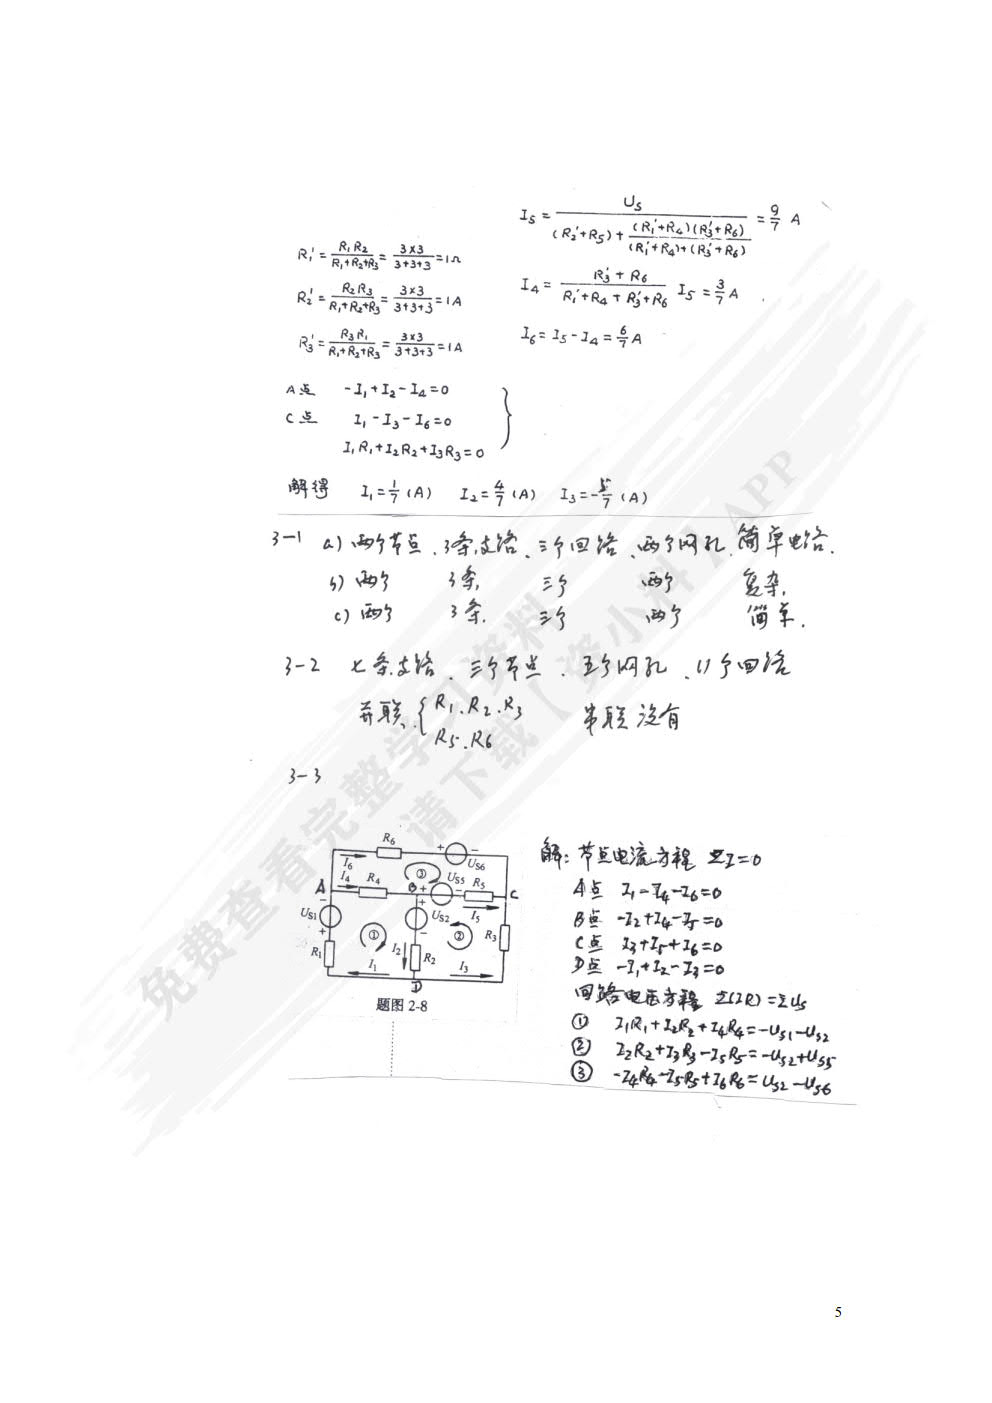 I₅ = U_S / ((R₂'+R₅) + (R₁'+R₄)(R₃'+R₆) / ((R₁'+R₄)+(R₃'+R₆))) = 9/7 A
R₁' = R₁R₂ / (R₁+R₂+R₃) = 3×3 / (3+3+3) = 1Ω
R₂' = R₂R₃ / (R₁+R₂+R₃) = 3×3 / (3+3+3) = 1A
R₃' = R₃R₁ / (R₁+R₂+R₃) = 3×3 / (3+3+3) = 1A
I₄ = (R₃'+R₆) / (R₁'+R₄+R₃'+R₆) I₅ = 3/7 A
I₆ = I₅ - I₄ = 6/7 A
A点 -I₁+I₂-I₄=0
C点 I₁-I₃-I₆=0
I₁R₁+I₂R₂+I₃R₃=0
解得 I₁=1/7 (A) I₂=4/7 (A) I₃=-5/7 (A)
3-1 a) 两个节点、3条支路、三个回路、两个网孔、简单电路.
b) 两个 3条, 三个 两个 复杂,
c) 两个 3条. 三个 两个 简单.
3-2 七条支路、三个节点、五个网孔、11个回路
并联 { R₁.R₂.R₃ 串联没有
R₅.R₆
3-3
R₆
+ - U_S6
I₆
③
A I₄ R₄ B + U_S5 R₅ C
U_S1 + U_S2 - I₅
① ② R₃
R₁ I₂ R₂
I₁ I₃
D
题图 2-8
解: 节点电流方程 ΣI=0
A点 I₁-I₄-I₆=0
B点 -I₂+I₄-I₅=0
C点 I₃+I₅+I₆=0
D点 -I₁+I₂-I₃=0
回路电压方程 Σ(IR)=ΣU_S
① I₁R₁+I₂R₂+I₄R₄=-U_S1-U_S2
② I₂R₂+I₃R₃-I₅R₅=-U_S2+U_S5
③ -I₄R₄-I₅R₅+I₆R₆=U_S2-U_S6
免费查看完整学习资料
请下载【资小料】APP
5